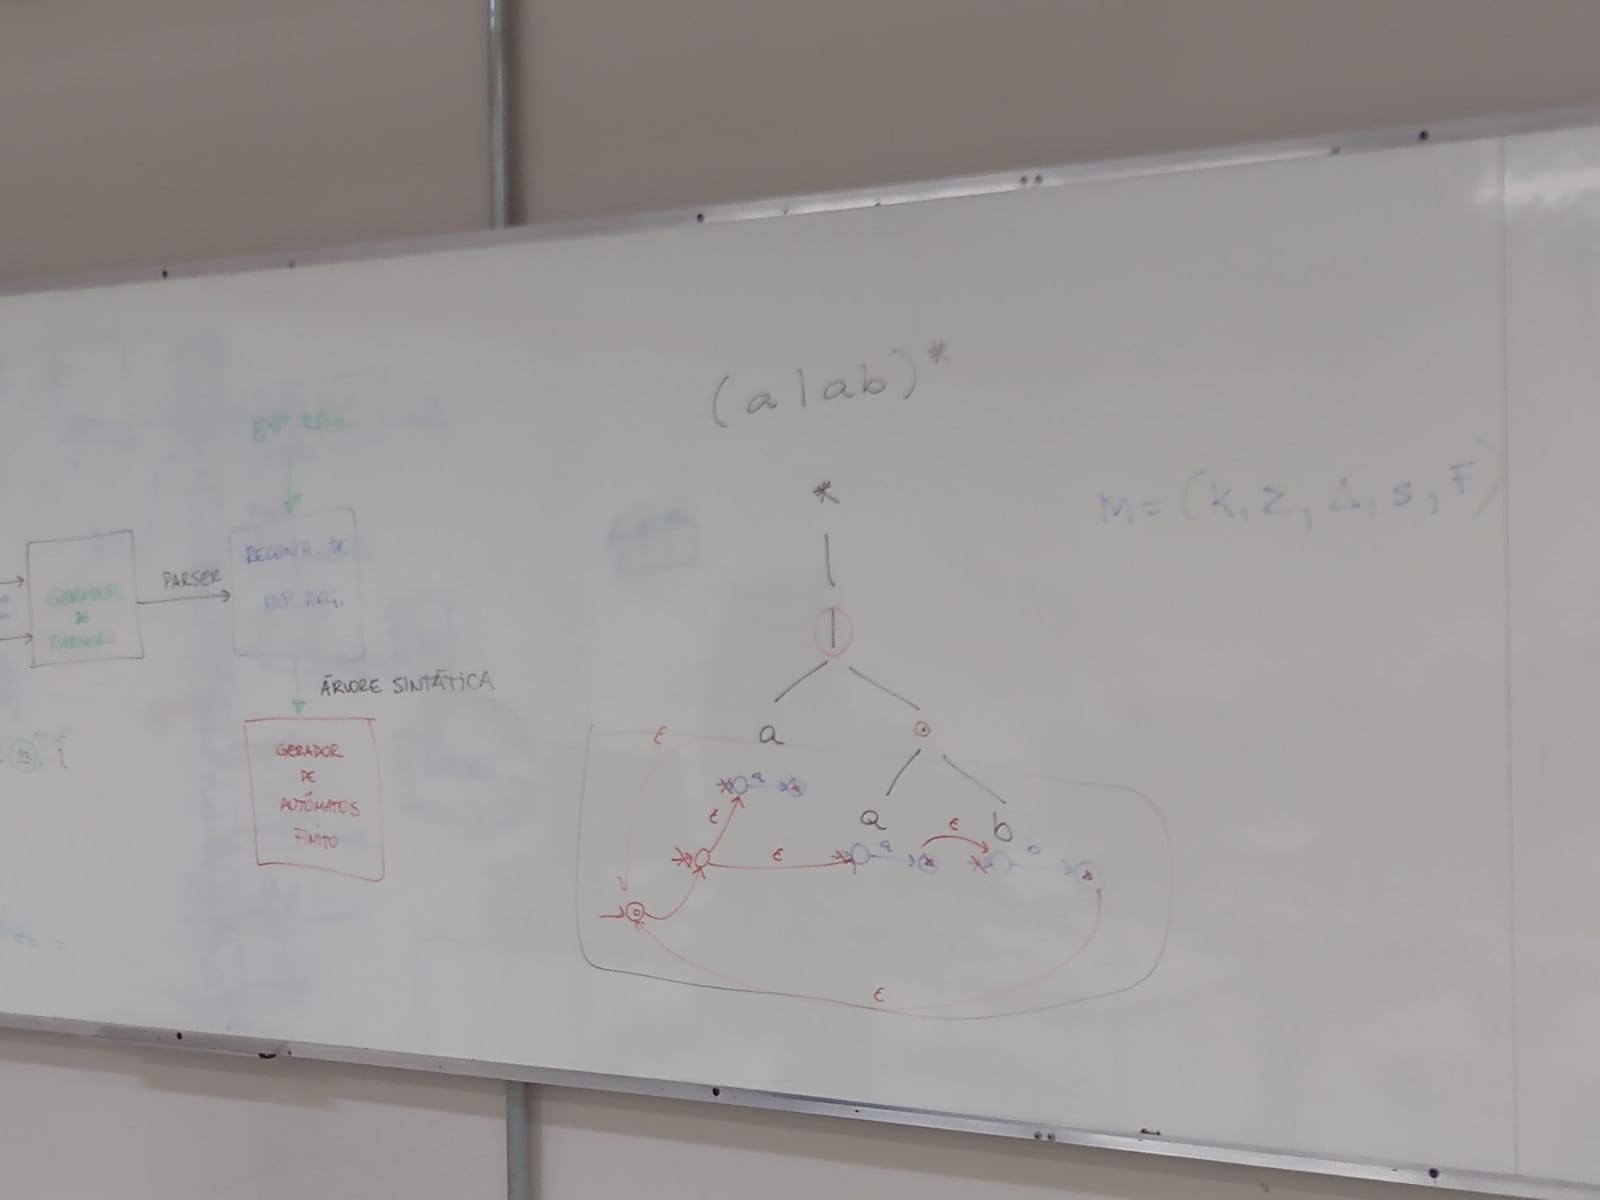 EXP. REG.
GERADOR
DE
PARSERS
PARSER
RECONH. DE
EXP. REG.
ÁRVORE SINTÁTICA
GERADOR
DE
AUTÔMATOS
FINITO
(a|ab)*
*
|
a
a
b
ε
a
ε
ε
a
ε
b
ε
M = (K, Σ, Δ, s, F)